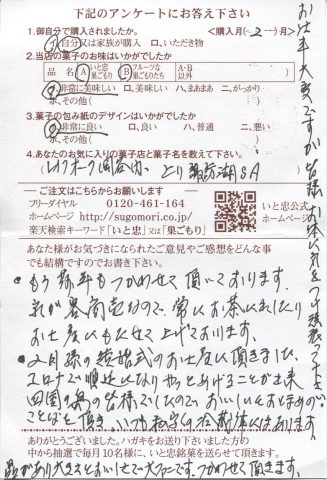 下記のアンケートにお答え下さい
1.御自分で購入されましたか。 <購入月(-2-)月>
イ、自分又は家族が購入 ロ、いただき物
2.当店の菓子のお味はいかがでしたか
品名 A いと忠巣ごもり B フルーツな巣ごもりたち A・B以外
イ、非常に美味しい ロ、美味しい ハ、まあまあ ニ、がっかり
ホ、その他( )
3.菓子の包み紙のデザインはいかがでしたか
イ、非常に良い ロ、良い ハ、普通 ニ、悪い
ホ、その他( )
4.あなたのお気に入りの菓子店と菓子名を教えて下さい。
諏訪湖SA
ご注文はこちらからお願いします
フリーダイヤル 0120-461-164
ホームページ http://sugomori.co.jp/
楽天検索キーワード「いと忠」又は「巣ごもり」
いと忠公式ホームページ
あなた様がお気づきになられたご意見やご感想をどんな事でも結構ですのでお書き下さい。
●もう何年もつかわせて頂いております。
気が客商売なので、常にお茶いれしたり
お土産にもたせて上げております。
●2月孫の結婚式のお土産に頂きました、
コロナで順延になりやっとあげることが出来
四国の の皆様でしたので、おいしいとおほめの
ことばを頂き、いつも私宅の冷蔵庫にはあります、
ありがとうございました。ハガキをお送り下さいました方の
中から抽選で毎月10名様に、いと忠銘菓を送らせて頂きます。
品があり大きさとおいしさで大ファンです。つかわせて頂きます。
お仕事大変ですが皆様お体に気をつけて頑張って下さい